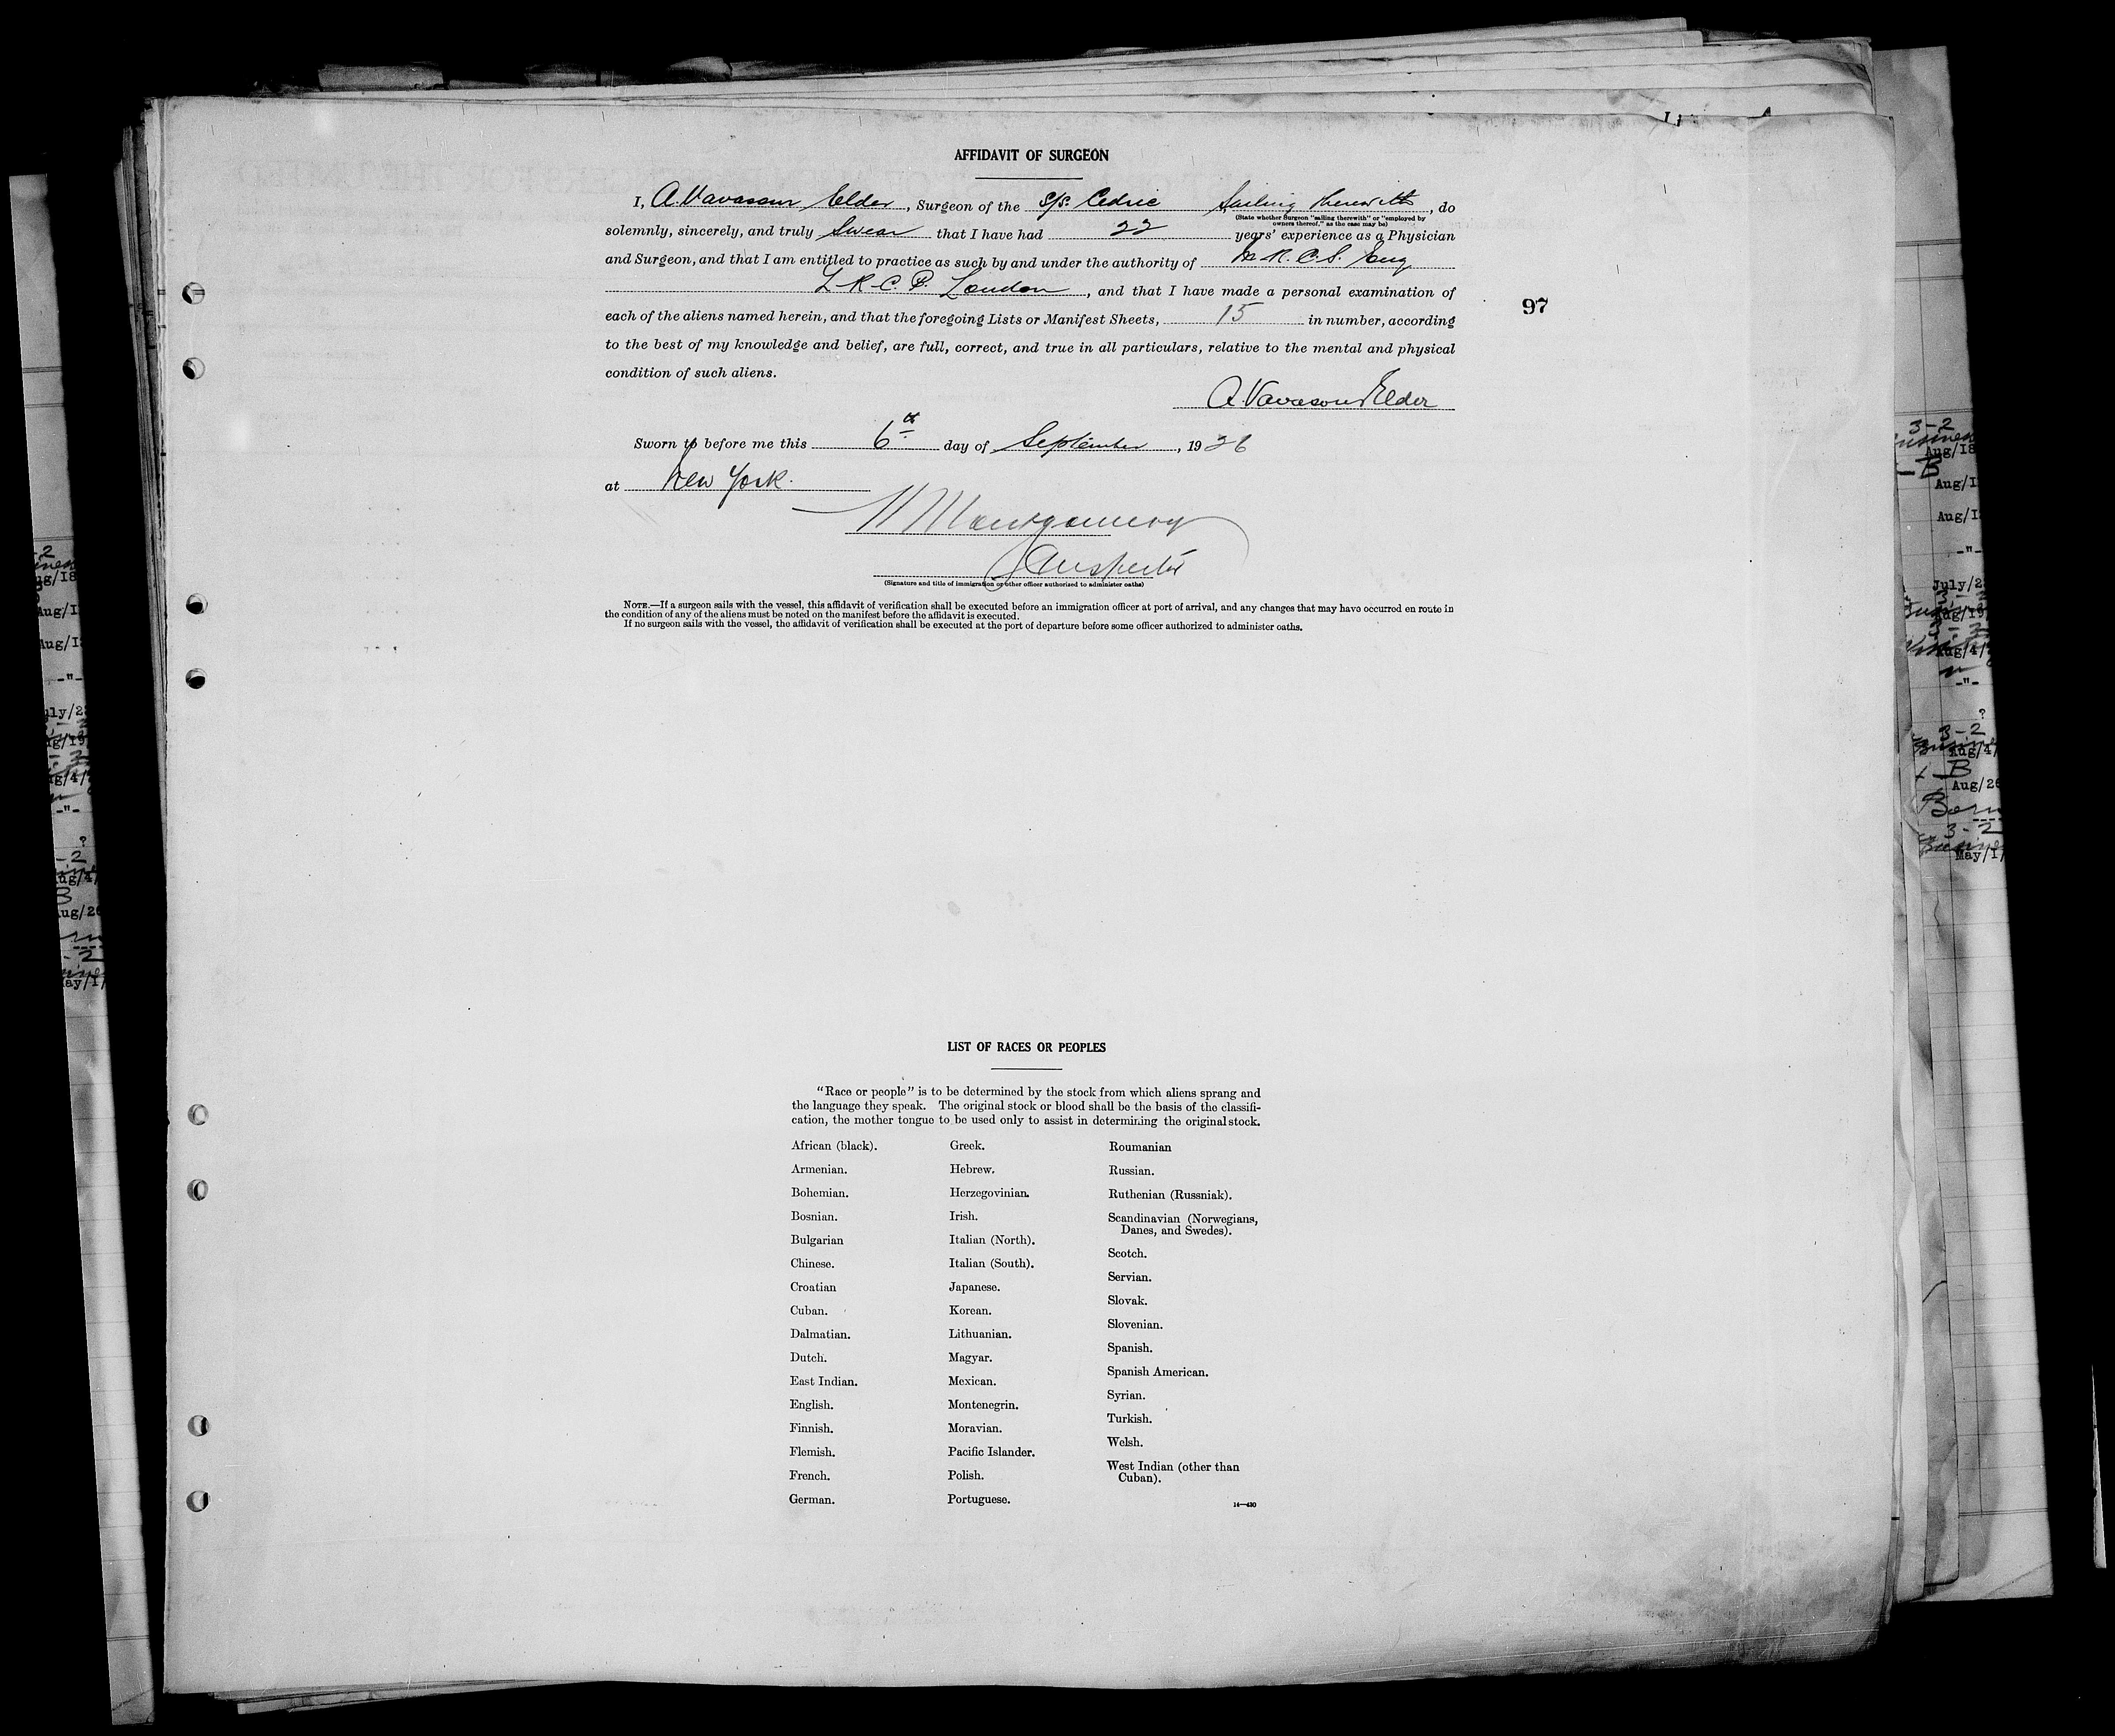 AFFIDAVIT OF SURGEON
I, A. Vavasour Elder, Surgeon of the S/S. Cedric Sailing therewith, do
(State whether Surgeon "sailing therewith" or "employed by
owners thereof," as the case may be)
solemnly, sincerely, and truly Swear that I have had 22 years' experience as a Physician
and Surgeon, and that I am entitled to practice as such by and under the authority of M.R.C.S. Eng
L.R.C.P. London, and that I have made a personal examination of
97
each of the aliens named herein, and that the foregoing Lists or Manifest Sheets, 15 in number, according
to the best of my knowledge and belief, are full, correct, and true in all particulars, relative to the mental and physical
condition of such aliens.
A. Vavasour Elder
Sworn to before me this 6th day of September, 1926
at New York.
Montgomery
Inspector
(Signature and title of immigration or other officer authorized to administer oaths)
NOTE.—If a surgeon sails with the vessel, this affidavit of verification shall be executed before an immigration officer at port of arrival, and any changes that may have occurred en route in
the condition of any of the aliens must be noted on the manifest before the affidavit is executed.
If no surgeon sails with the vessel, the affidavit of verification shall be executed at the port of departure before some officer authorized to administer oaths.
LIST OF RACES OR PEOPLES
"Race or people" is to be determined by the stock from which aliens sprang and
the language they speak. The original stock or blood shall be the basis of the classifi-
cation, the mother tongue to be used only to assist in determining the original stock.
African (black).
Armenian.
Bohemian.
Bosnian.
Bulgarian
Chinese.
Croatian
Cuban.
Dalmatian.
Dutch.
East Indian.
English.
Finnish.
Flemish.
French.
German.
Greek.
Hebrew.
Herzegovinian.
Irish.
Italian (North).
Italian (South).
Japanese.
Korean.
Lithuanian.
Magyar.
Mexican.
Montenegrin.
Moravian.
Pacific Islander.
Polish.
Portuguese.
Roumanian
Russian.
Ruthenian (Russniak).
Scandinavian (Norwegians,
Danes, and Swedes).
Scotch.
Servian.
Slovak.
Slovenian.
Spanish.
Spanish American.
Syrian.
Turkish.
Welsh.
West Indian (other than
Cuban).
14—430
3-2
Aug/18
B
Aug/1
Aug/1
-"-
July/2
Aug/19
Aug/4/
-"-
?
3-2
Aug/4/
B
Aug/26
Born
3-2
May/1/